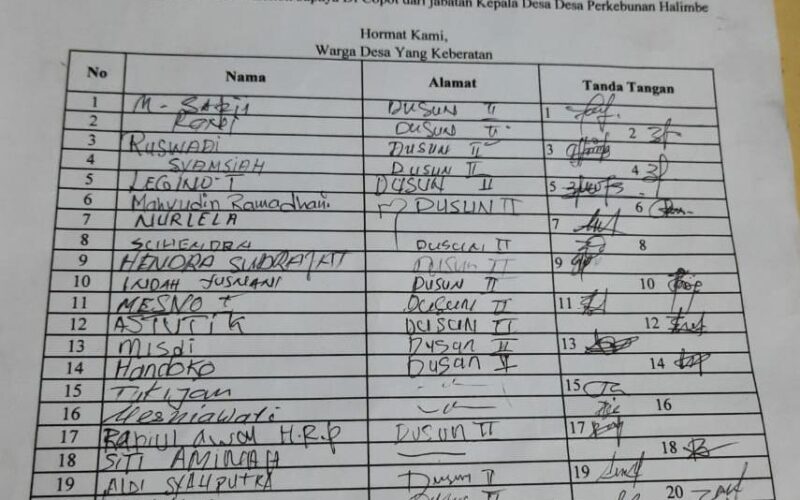 Di Copot dari Jabatan Kepala Desa Desa Perkebunan Halimbe
Hormat Kami,
Warga Desa Yang Keberatan
No Nama Alamat Tanda Tangan
1 DUSUN II 1
2 DUSUN II 2
3 RUSWADI DUSUN II 3
4 SYAMSIAH DUSUN II 4
5 LEGINO.T DUSUN II 5
6 Mahyudin Ramadhani. DUSUN II 6
7 NURLELA 7
8 SUHENDRA DUSUN II 8
9 HENDRA SUDRAJAT DUSUN II 9
10 INDAH JUSNANI DUSUN II 10
11 MESNO T DUSUN II 11
12 ASTUTIK DUSUN II 12
13 Misdi Dusun II 13
14 Handoko Dusun II 14
15 Tukijan 15
16 Mesniawati 16
17 Rapiul Awal H.R.P DUSUN II 17
18 SITI AMINAH 18
19 ALDI SYAHPUTRA Dusun II 19
20